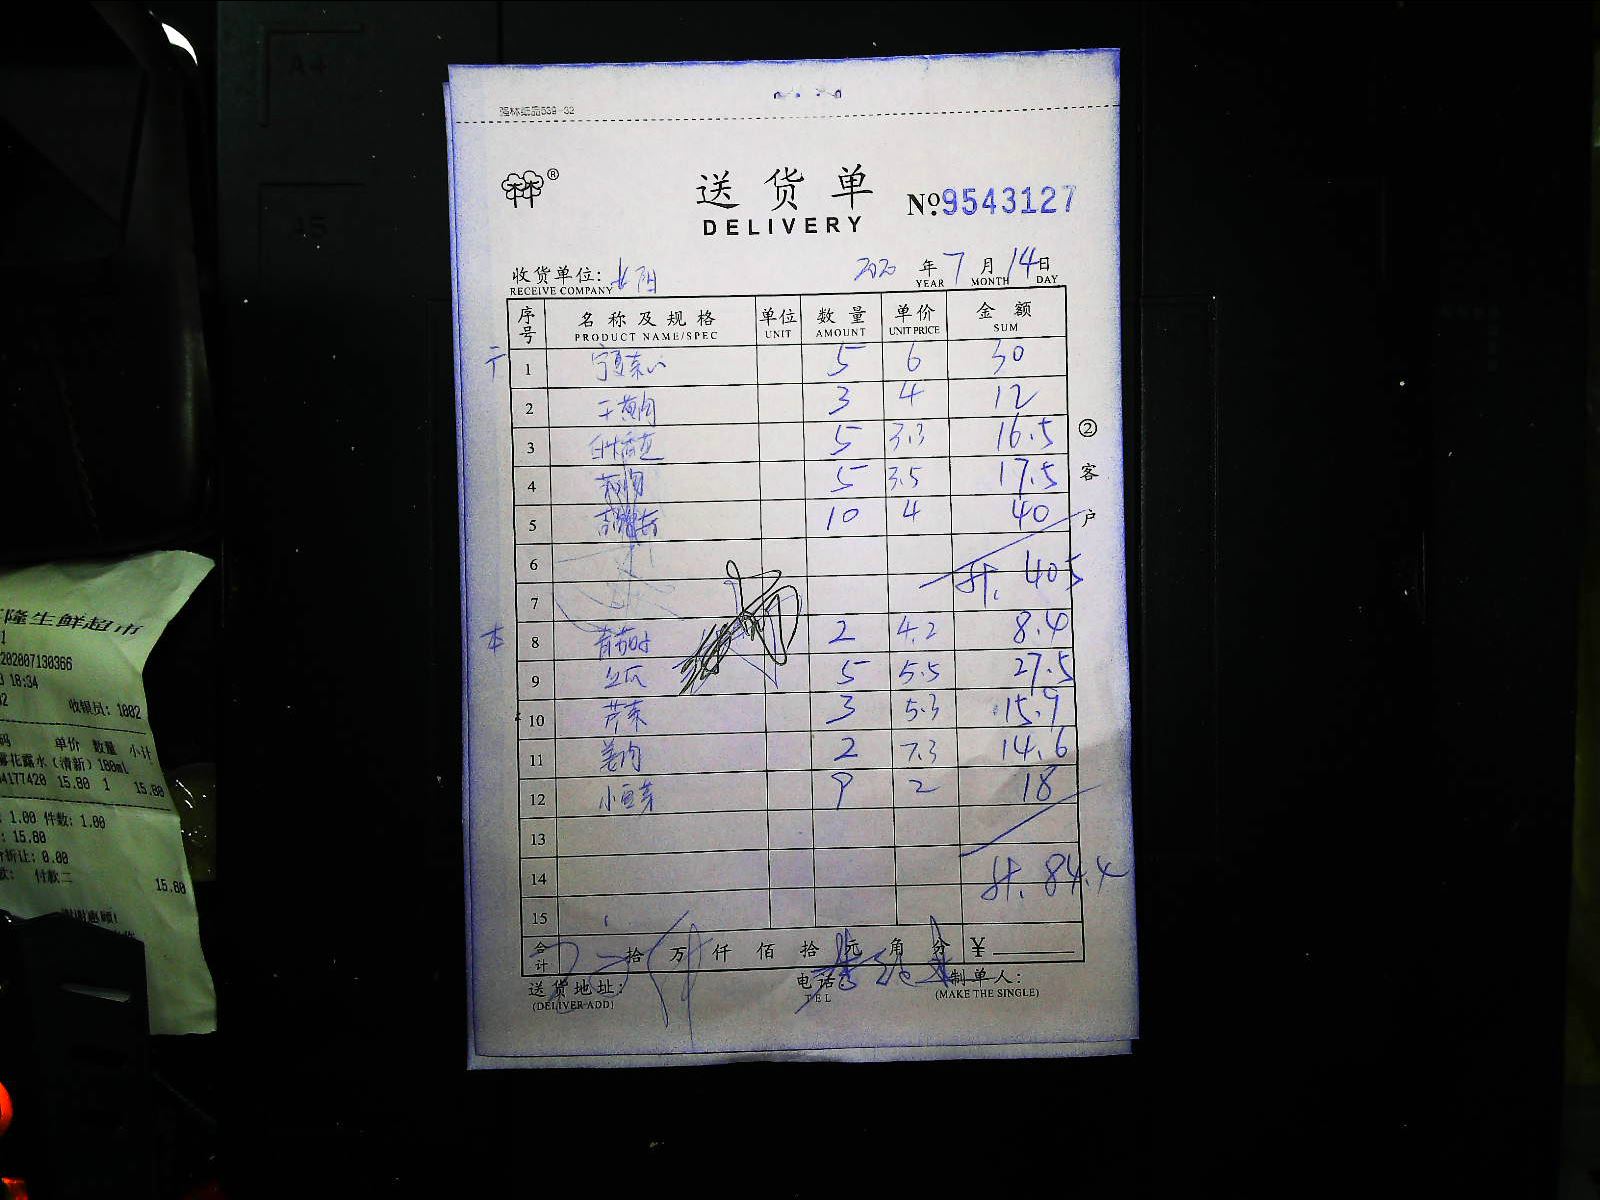 强林纸品639-32
®
送货单
DELIVERY
№9543127
收货单位:
RECEIVE COMPANY
2020 年 7 月 14 日
YEAR MONTH DAY
序号 名称及规格 单位 数量 单价 金额
PRODUCT NAME/SPEC UNIT AMOUNT UNIT PRICE SUM
1 宁夏菜心 5 6 30
2 黄肉 3 4 12
3 5 3.3 16.5
4 5 3.5 17.5
5 10 4 40
6
7 405
本 8 青茄 2 4.2 8.4
9 丝瓜 5 5.5 27.5
10 芹菜 3 5.3 15.9
11 姜肉 2 7.3 14.6
12 小豆芽 9 2 18
13
14 84.4
15
合计 拾 万 仟 佰 拾 元 角 分 ¥
送货地址: 电话: 制单人:
(DELIVER ADD) TEL (MAKE THE SINGLE)
②客户
隆生鲜超市
202007130366
18:34
收银员: 1002
码 单价 数量 小计
花露水(清新)180mL
4177420 15.80 1 15.80
: 1.00 件数: 1.00
: 15.80
折让: 0.00
款: 付款二 15.80
谢谢惠顾!